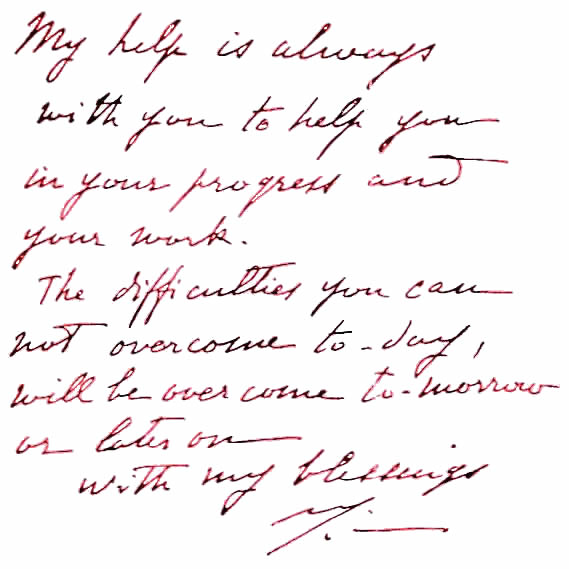 My help is always
with you to help you
in your progress and
your work.
The difficulties you can
not overcome to-day,
will be overcome to-morrow
or later on
with my blessings